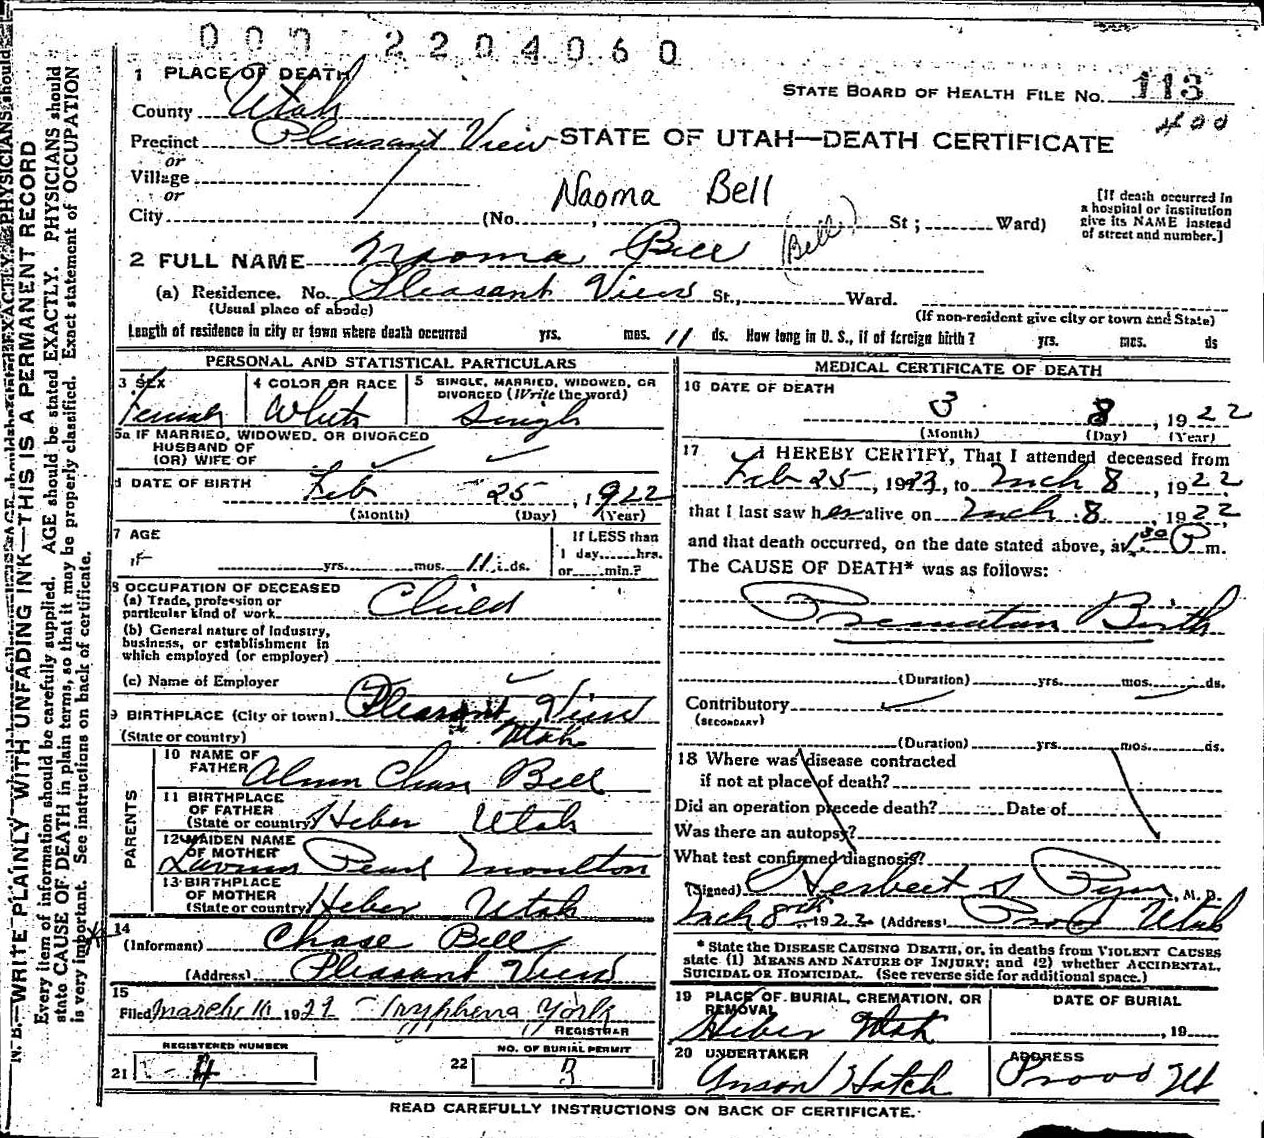 000 2204060
1 PLACE OF DEATH
STATE BOARD OF HEALTH FILE NO. 113
400
County Utah
Precinct Pleasant View
STATE OF UTAH—DEATH CERTIFICATE
or
Village
or
Naoma Bell
City (No. , St ; Ward)
[If death occurred in
a hospital or institution
give its NAME instead
of street and number.]
2 FULL NAME Naoma Bell (Bell)
(a) Residence. No. Pleasant View St., Ward.
(Usual place of abode)
(If non-resident give city or town and State)
Length of residence in city or town where death occurred yrs. mos. 11 ds. How long in U. S., if of foreign birth? yrs. mos. ds
PERSONAL AND STATISTICAL PARTICULARS
3 SEX
Female
4 COLOR OR RACE
White
5 SINGLE, MARRIED, WIDOWED, OR
DIVORCED (Write the word)
Single
5a IF MARRIED, WIDOWED, OR DIVORCED
HUSBAND OF
(OR) WIFE OF
DATE OF BIRTH Feb 25, 1922
(Month) (Day) (Year)
7 AGE
yrs. mos. 11 ds.
If LESS than
1 day hrs.
or min.?
8 OCCUPATION OF DECEASED
(a) Trade, profession or
particular kind of work Child
(b) General nature of Industry,
business, or establishment in
which employed (or employer)
(c) Name of Employer
9 BIRTHPLACE (City or town) Pleasant View
(State or country) Utah
PARENTS
10 NAME OF
FATHER Chase Bell
11 BIRTHPLACE
OF FATHER
(State or country) Heber Utah
12 MAIDEN NAME
OF MOTHER
Pearl Moulton
13 BIRTHPLACE
OF MOTHER
(State or country) Heber Utah
14
(Informant) Chase Bell
(Address) Pleasant View
15
Filed March 10 1922 Tryphena York
REGISTRAR
REGISTERED NUMBER
21 4
NO. OF BURIAL PERMIT
22 3
MEDICAL CERTIFICATE OF DEATH
16 DATE OF DEATH
3 8, 1922
(Month) (Day) (Year)
17 I HEREBY CERTIFY, That I attended deceased from
Feb 25, 1922, to Mch 8, 1922
that I last saw her alive on Mch 8, 1922
and that death occurred, on the date stated above, at 1:30 P m.
The CAUSE OF DEATH* was as follows:
Premature Birth
(Duration) yrs. mos. ds.
Contributory
(SECONDARY)
(Duration) yrs. mos. ds.
18 Where was disease contracted
if not at place of death?
Did an operation precede death? Date of
Was there an autopsy?
What test confirmed diagnosis?
(Signed) Herbert S Pyne, M. D.
Mch 8th 1922 (Address) Provo Utah
* State the DISEASE CAUSING DEATH, or, in deaths from VIOLENT CAUSES
state (1) MEANS AND NATURE OF INJURY; and (2) whether ACCIDENTAL,
SUICIDAL OR HOMICIDAL. (See reverse side for additional space.)
19 PLACE OF BURIAL, CREMATION, OR
REMOVAL
Heber Utah
DATE OF BURIAL
, 19
20 UNDERTAKER
Anson Hatch
ADDRESS
Provo Ut
READ CAREFULLY INSTRUCTIONS ON BACK OF CERTIFICATE.
N. B.—WRITE PLAINLY WITH UNFADING INK—THIS IS A PERMANENT RECORD
Every item of information should be carefully supplied. AGE should be stated EXACTLY. PHYSICIANS should
state CAUSE OF DEATH in plain terms, so that it may be properly classified. Exact statement of OCCUPATION
is very important. See instructions on back of certificate.